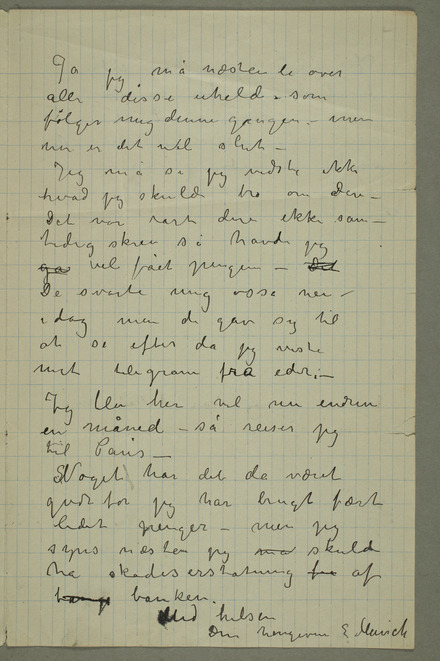 Ja jeg må næsten le over
alle disse uheld. som
følger mig denne gangen. – men
nu er det vel slut –
Jeg må se jeg vidste ikke
hvad jeg skulde tro om Dere –
Det var rart dere ikke sam-
tidig skrev så havde jeg
vel fået pengene – Det
De svarte mig osse nei –
idag men de gav sig til
at se efter da jeg viste
mit telegram fra eder; –
Jeg blir her vel nu endnu
en måned – så reiser jeg
til Paris –
Noget har det da været
godt for jeg har brugt færst
lidet penger – men jeg
syns næsten jeg må skulde
ha skadeserstatning fra af
banken.
Med hilsen
Din hengivne E. Munch